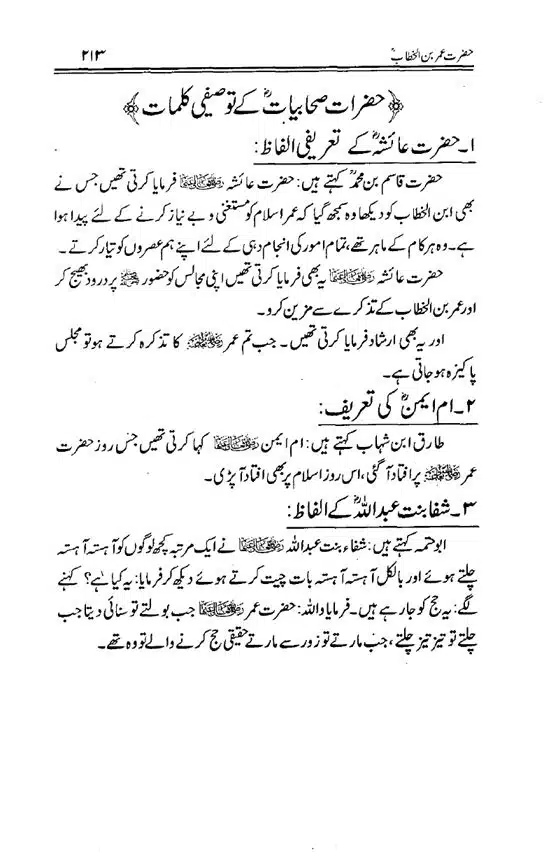 حضرت عمر بن الخطابؓ ۲۱۳
﴿حضرات صحابیاتؓ کے توصیفی کلمات﴾
۱۔ حضرت عائشہؓ کے تعریفی الفاظ:
حضرت قاسم بن محمدؒ کہتے ہیں: حضرت عائشہ فرمایا کرتی تھیں جس نے
بھی ابن الخطاب کو دیکھا وہ سمجھ گیا کہ عمر اسلام کو مستغنی و بے نیاز کرنے کے لئے پیدا ہوا
ہے۔ وہ ہر کام کے ماہر تھے، تمام امور کی انجام دہی کے لئے اپنے ہم عصروں کو تیار کرتے۔
حضرت عائشہ یہ بھی فرمایا کرتی تھیں اپنی مجالس کو حضور ﷺ پر درود بھیج کر
اور عمر بن الخطاب کے تذکرے سے مزین کرو۔
اور یہ بھی ارشاد فرمایا کرتی تھیں۔ جب تم عمر کا تذکرہ کرتے ہو تو مجلس
پاکیزہ ہو جاتی ہے۔
۲۔ ام ایمنؓ کی تعریف:
طارق ابن شہاب کہتے ہیں: ام ایمن کہا کرتی تھیں جس روز حضرت
عمر پر افتاد آ گئی، اس روز اسلام پر بھی افتاد آ پڑی۔
۳۔ شفا بنت عبداللہؓ کے الفاظ:
ابو حثمہ کہتے ہیں: شفاء بنت عبداللہ نے ایک مرتبہ کچھ لوگوں کو آہستہ آہستہ
چلتے ہوئے اور بالکل آہستہ آہستہ بات چیت کرتے ہوئے دیکھ کر فرمایا: یہ کیا ہے؟ کہنے
لگے: یہ حج کو جا رہے ہیں۔ فرمایا واللہ: حضرت عمر جب بولتے تو سنائی دیتا جب
چلتے تو تیز تیز چلتے، جب مارتے تو زور سے مارتے حقیقی حج کرنے والے تو وہ تھے۔